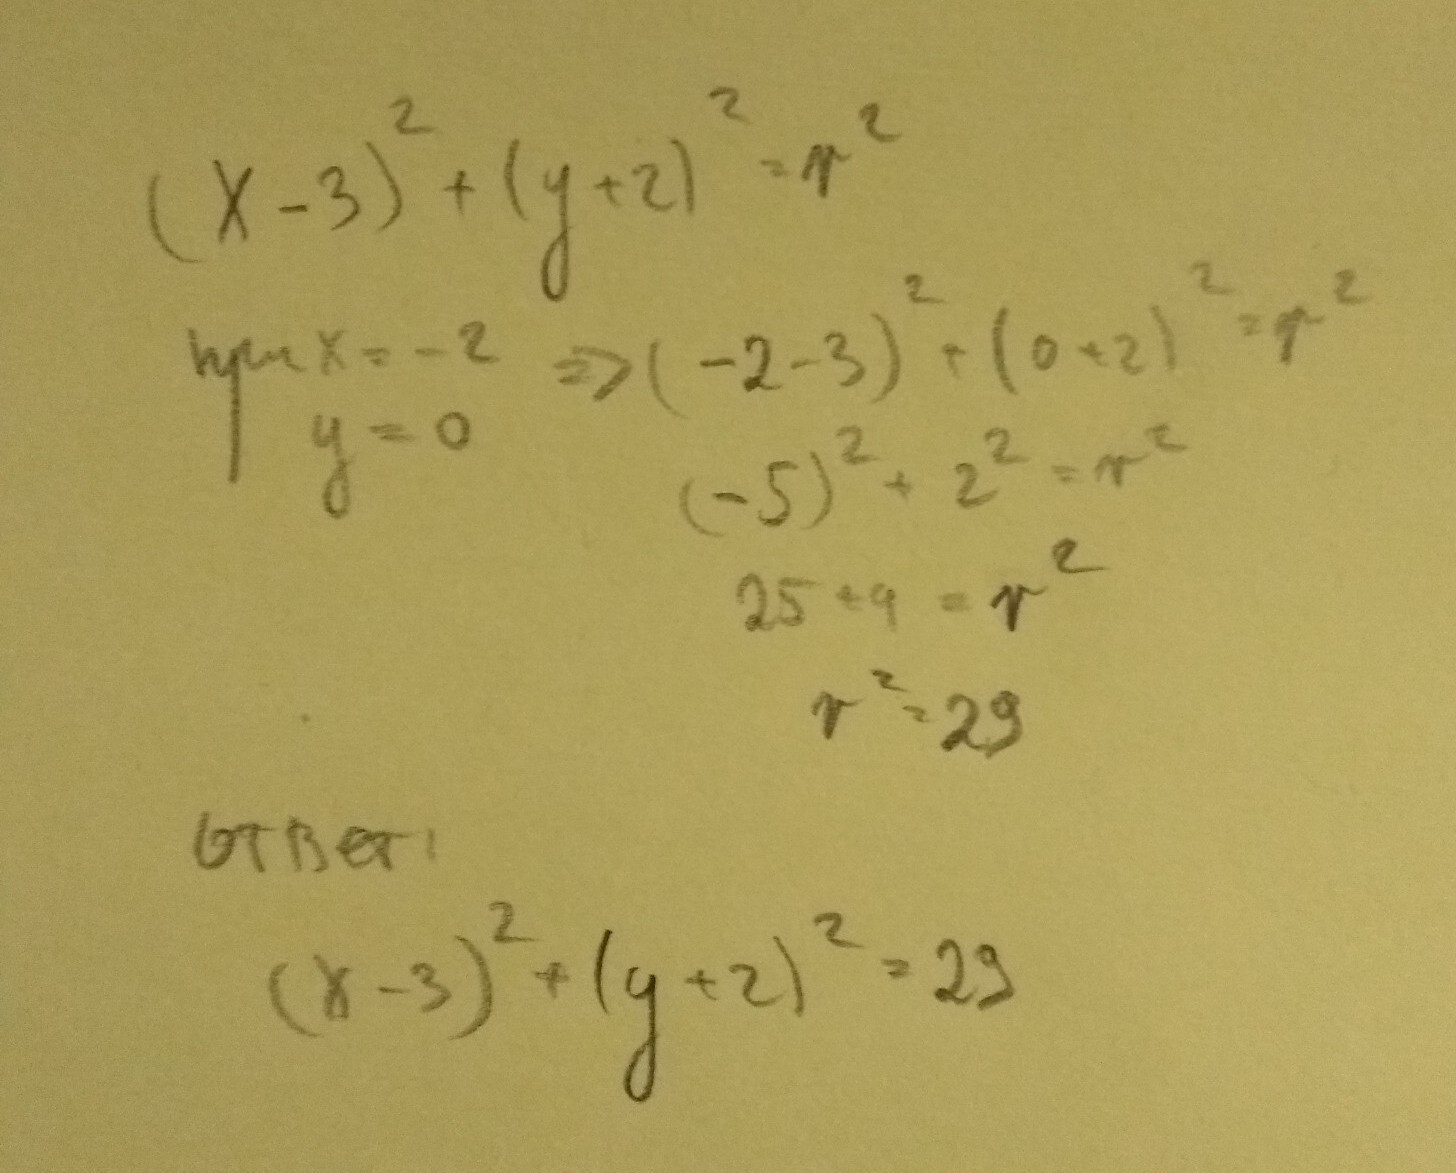 (x-3)² + (y+2)² = r²
при x = -2 ⇒ (-2-3)² + (0+2)² = r²
y = 0
(-5)² + 2² = r²
25 + 4 = r²
r² = 29
Ответ:
(x-3)² + (y+2)² = 29